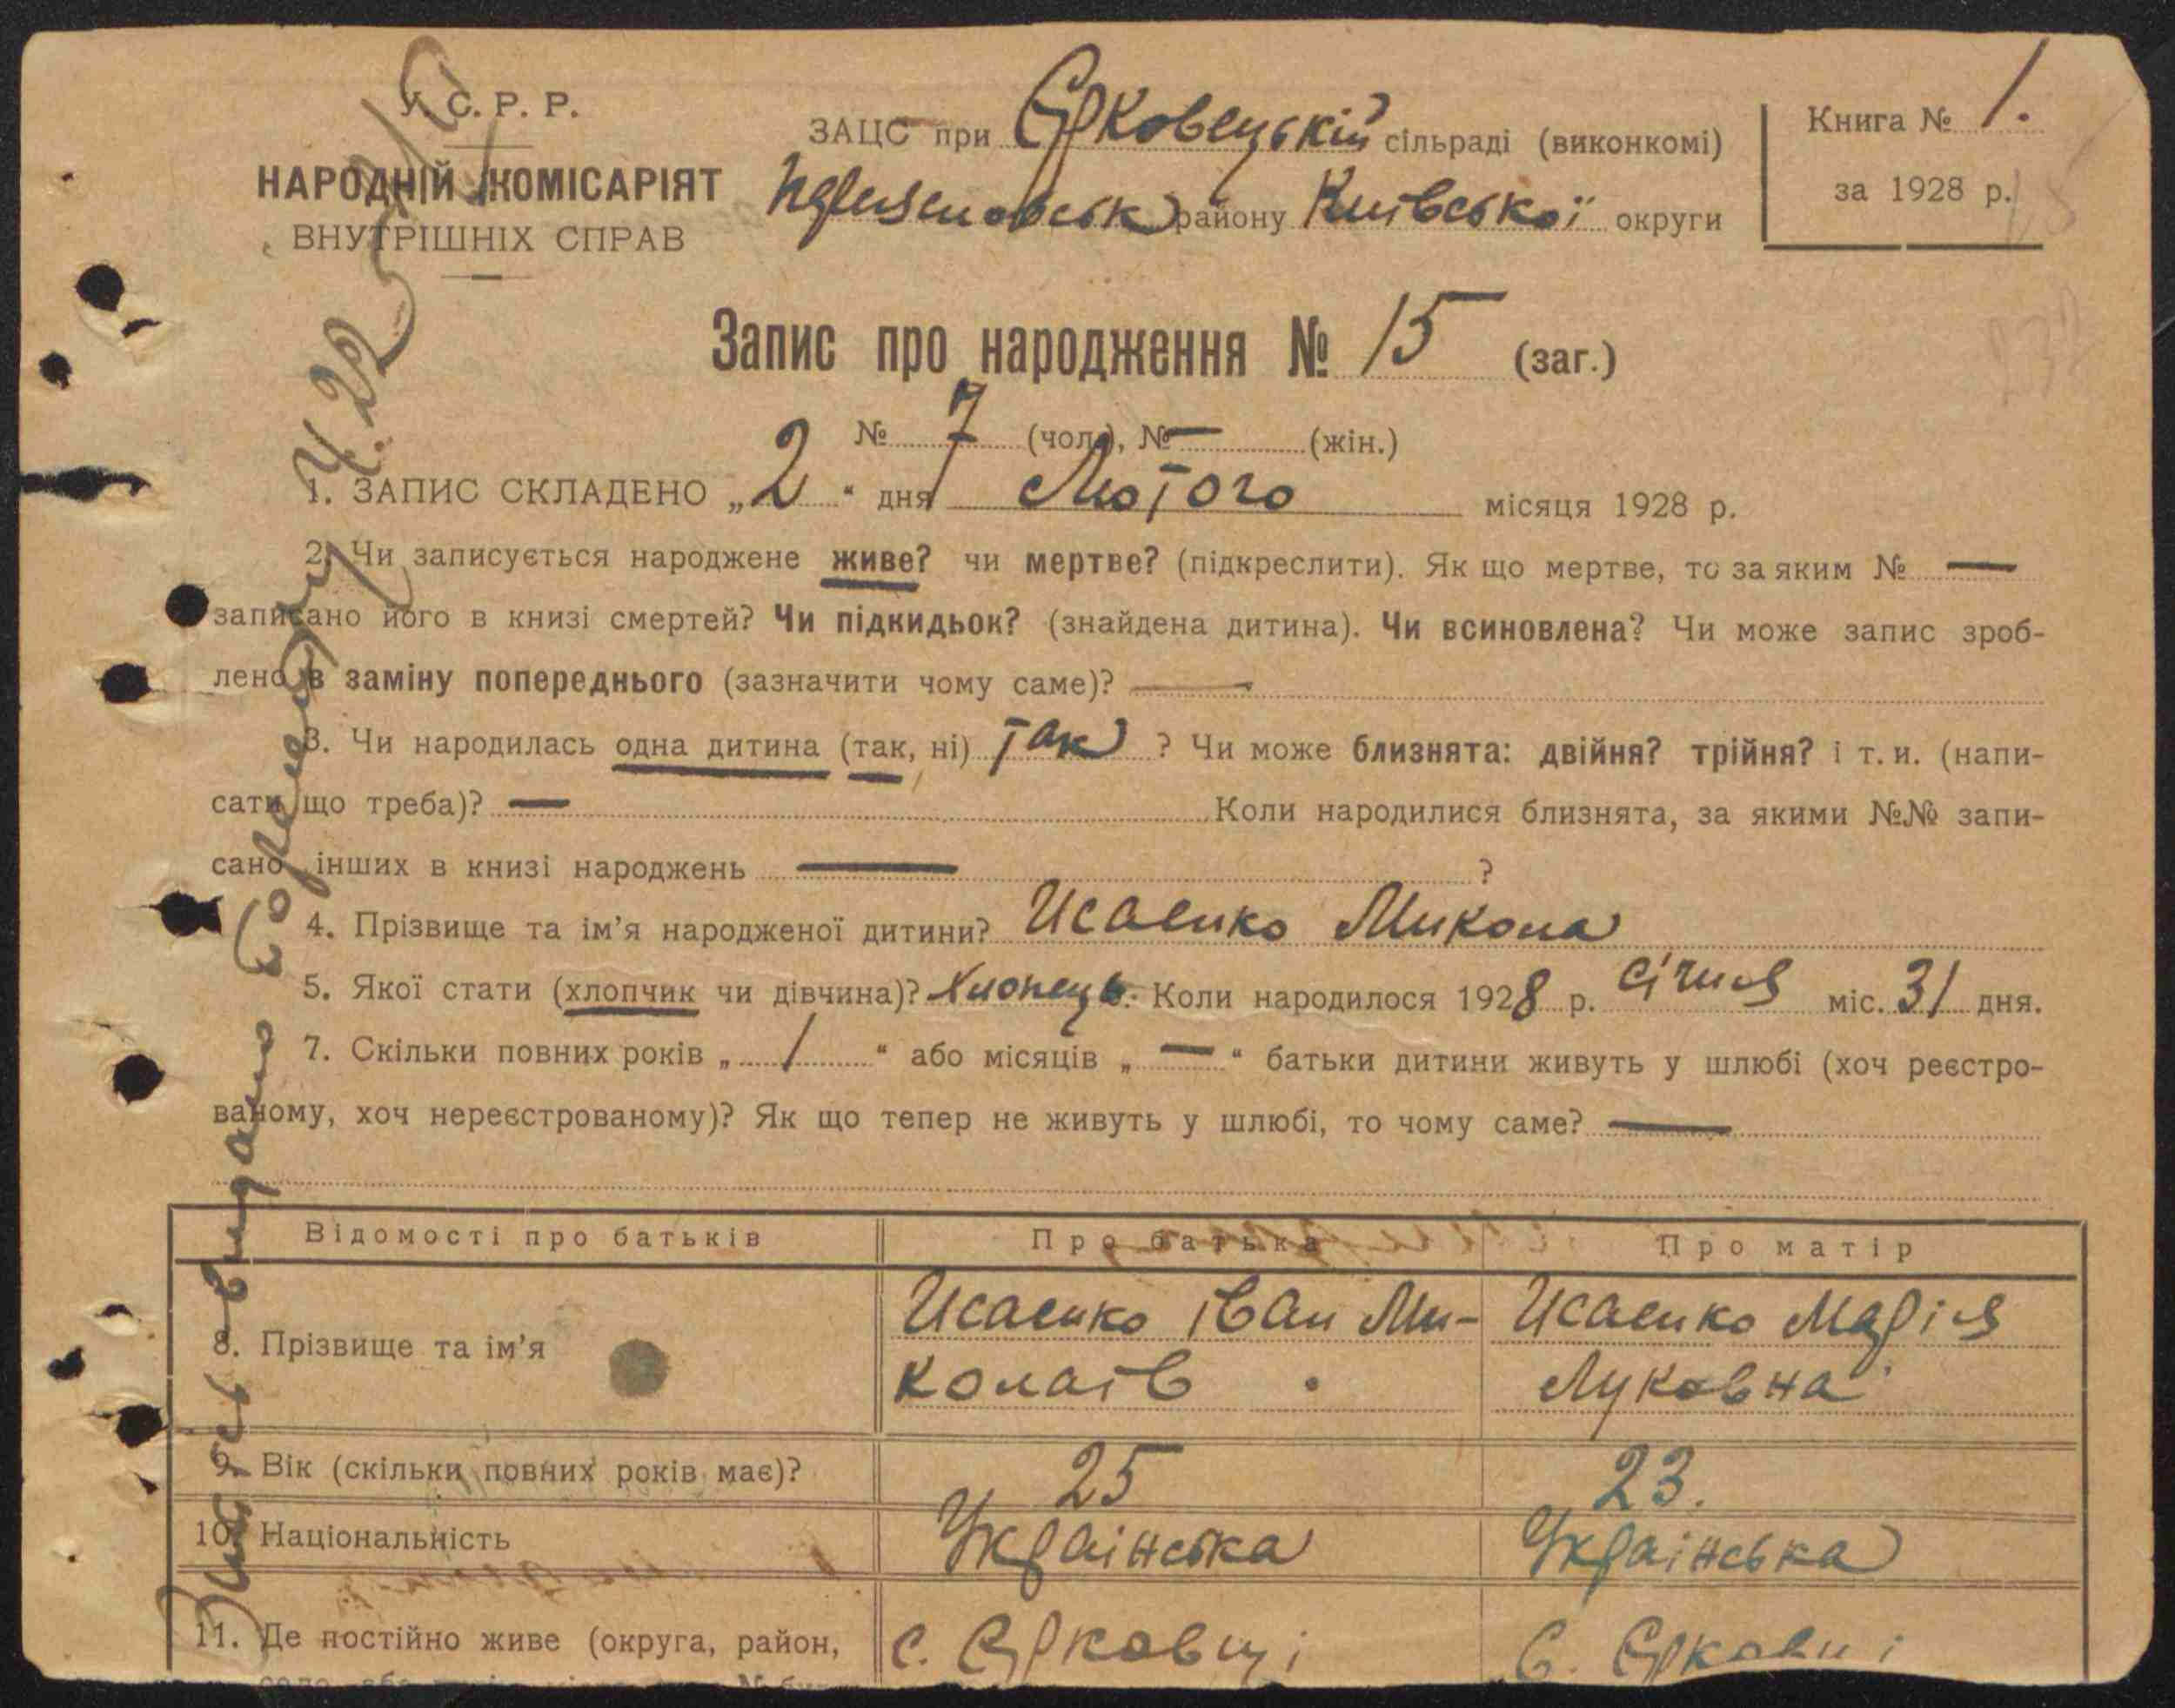 У. С. Р. Р.
НАРОДНІЙ КОМІСАРІЯТ
ВНУТРІШНІХ СПРАВ
ЗАЦС при Єрковецькій сільраді (виконкомі)
району Київської округи
Книга № 1.
за 1928 р.
Запис про народження № 15 (заг.)
№ 7 (чол.), № — (жін.)
1. ЗАПИС СКЛАДЕНО „2“ дня Лютого місяця 1928 р.
2. Чи записується народжене живе? чи мертве? (підкреслити). Як що мертве, то за яким № —
записано його в книзі смертей? Чи підкидьок? (знайдена дитина). Чи всиновлена? Чи може запис зроб-
лено в заміну попереднього (зазначити чому саме)? —
3. Чи народилась одна дитина (так, ні) так ? Чи може близнята: двійня? трійня? і т. и. (напи-
сати що треба)? — Коли народилися близнята, за якими №№ запи-
сано інших в книзі народжень — ?
4. Прізвище та ім’я народженої дитини? Исаенко Микола
5. Якої стати (хлопчик чи дівчина)? Хлопець. Коли народилося 1928 р. січня міс. 31 дня.
7. Скільки повних років „ 1 “ або місяців „ — “ батьки дитини живуть у шлюбі (хоч реєстро-
ваному, хоч нереєстрованому)? Як що тепер не живуть у шлюбі, то чому саме? —
Відомості про батьків Про батька Про матір
8. Прізвище та ім’я
Исаенко Іван Ми-
колаів
Исаенко Марія
Луковна
9. Вік (скільки повних років має)? 25 23.
10. Національність Украінська Украінська
11. Де постійно живе (округа, район, с. Єрковці с. Єрковці